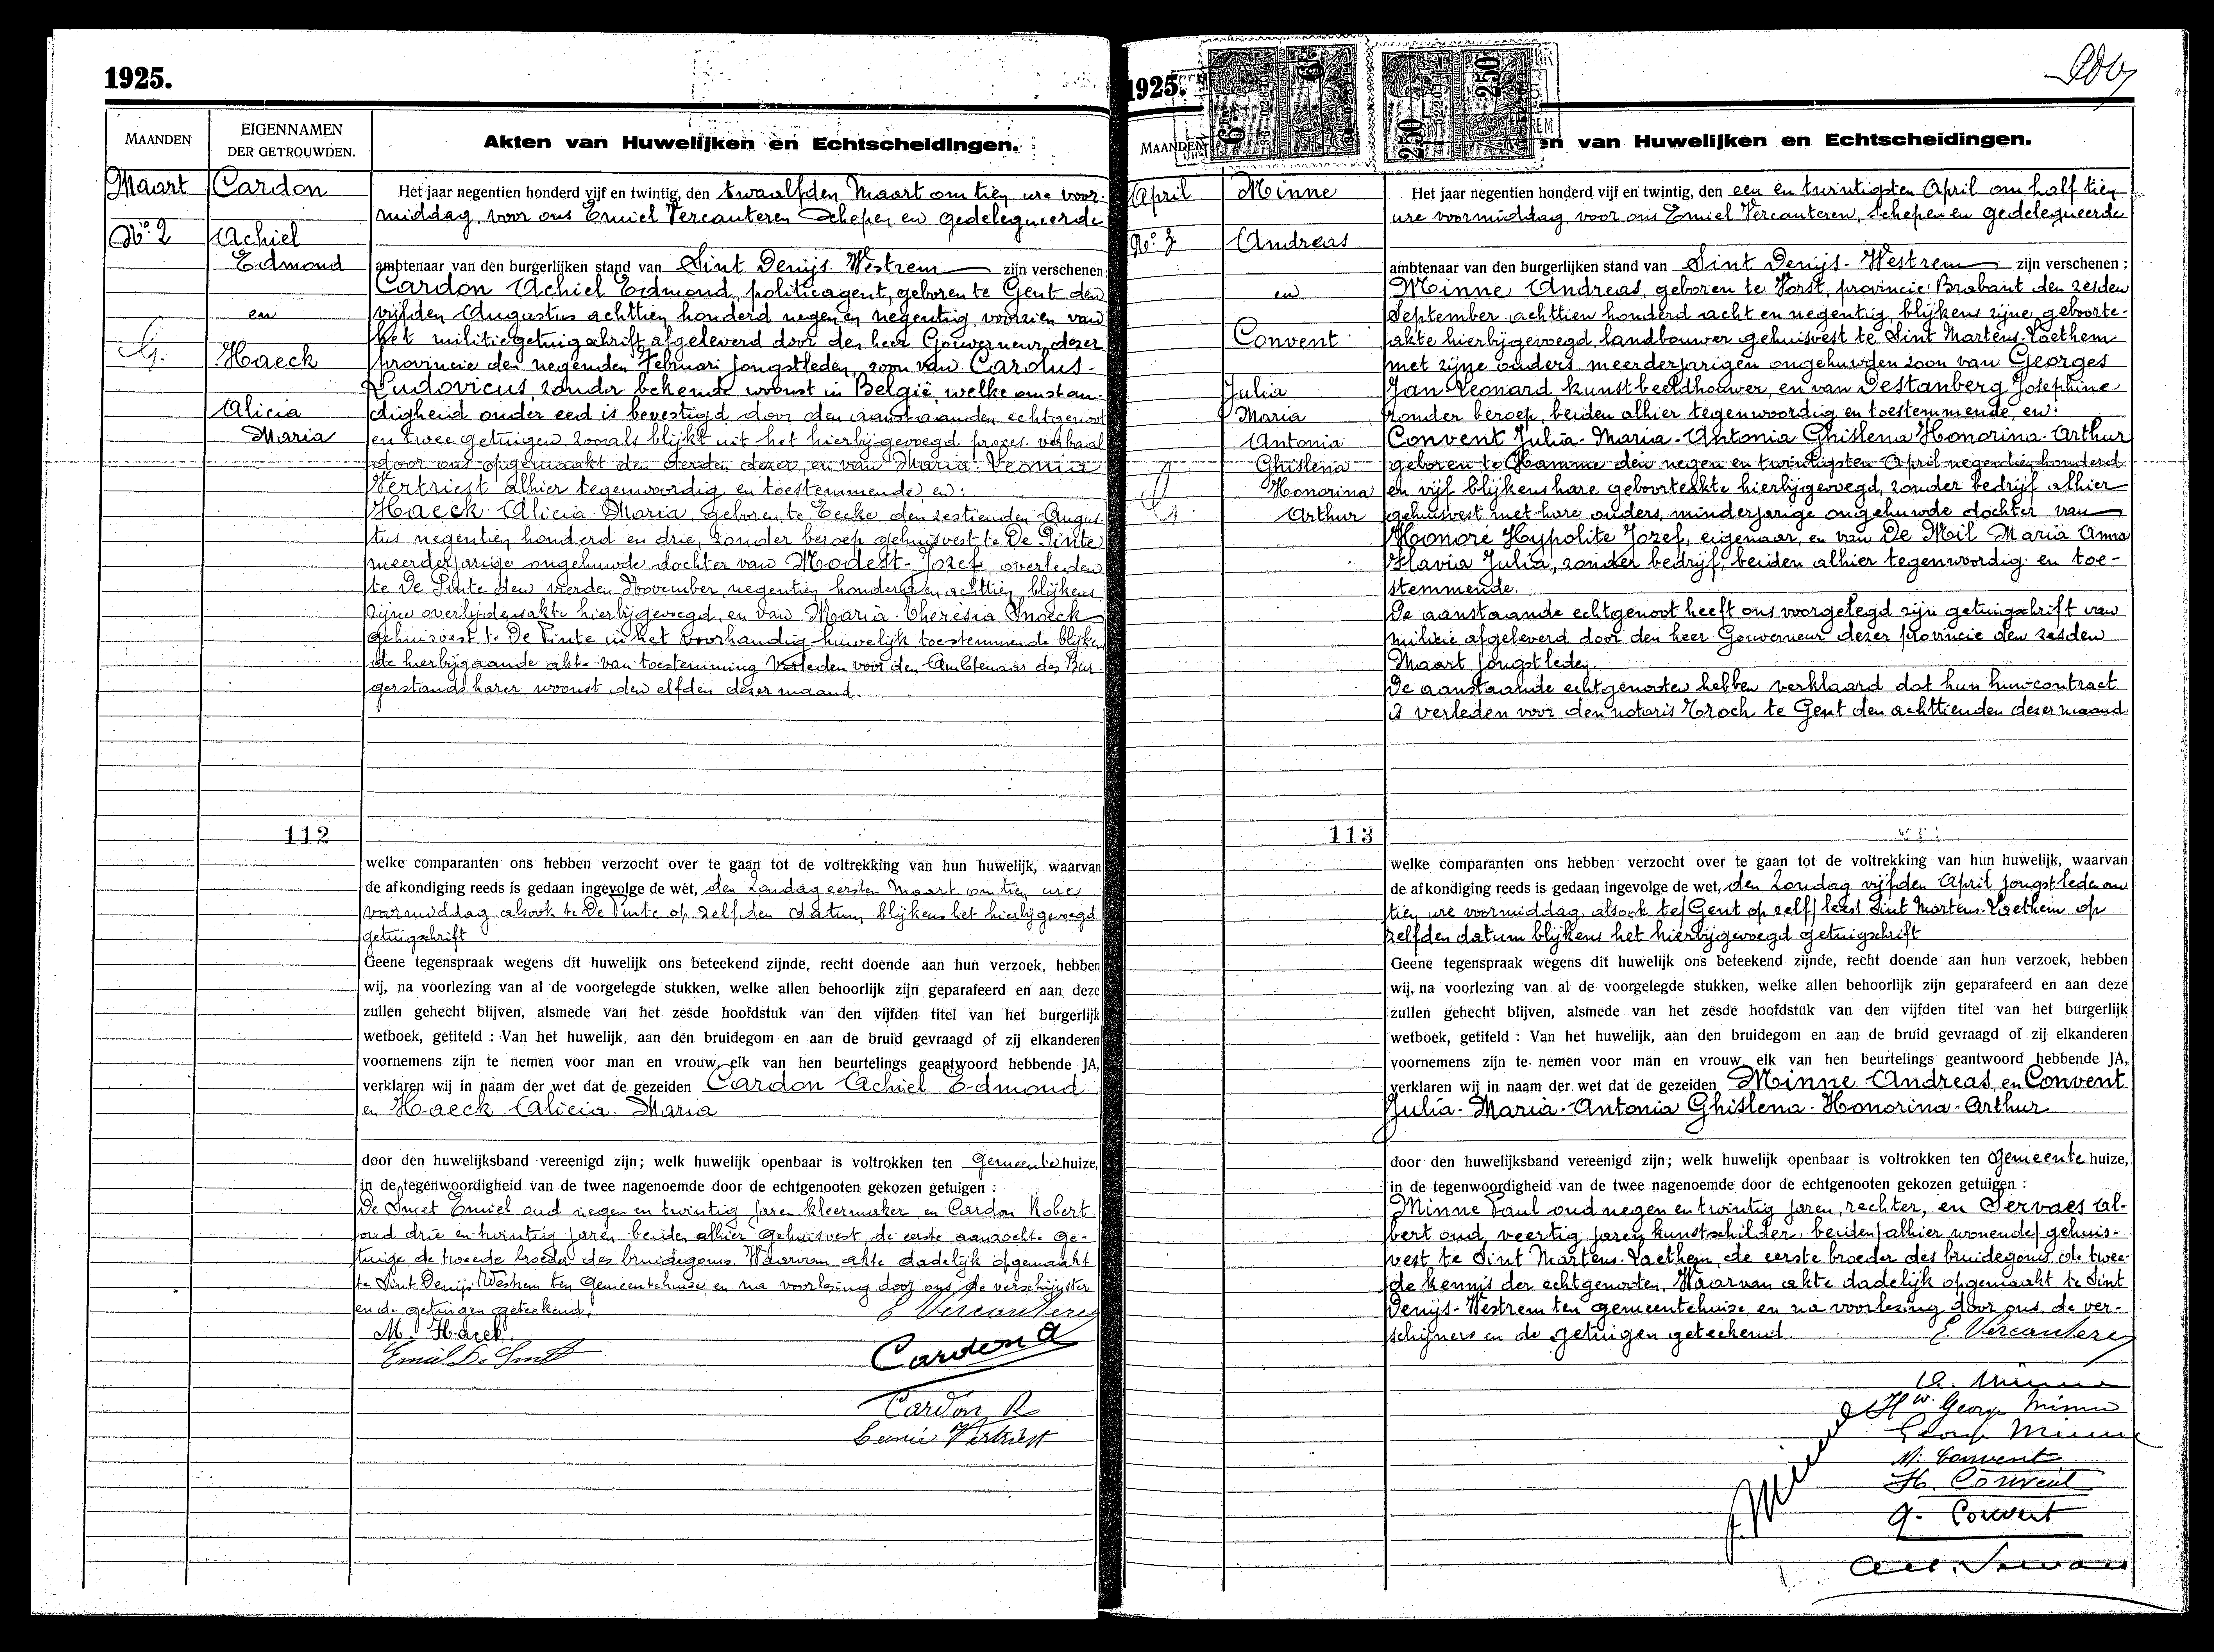 1925.
MAANDEN
EIGENNAMEN
DER GETROUWDEN.
Akten van Huwelijken en Echtscheidingen.
Maart
Cardon
No. 2
Achiel
Edmond
en
Haeck
Alicia
Maria
G.
Het jaar negentien honderd vijf en twintig, den twaalfden Maart om tien ure voor-
middag, voor ons Emiel Vercauteren Schepen en gedelegueerde
ambtenaar van den burgerlijken stand van Sint Denijs-Westrem zijn verschenen:
Cardon Achiel Edmond, politieagent, geboren te Gent den
vijfden Augustus achttien honderd negen en negentig, voorzien van
het militiegetuigschrift afgeleverd door den heer Gouverneur dezer
provincie den negenden Februari jongstleden, zoon van Carolus-
Ludovicus, zonder bekende woonst in België, welke omstan-
digheid onder eed is bevestigd door den aanstaanden echtgenoot
en twee getuigen zooals blijkt uit het hierbijgevoegd proces-verbaal
door ons opgemaakt den derden dezer, en van Maria-Leonia
Vertriest alhier tegenwoordig en toestemmende, en:
Haeck Alicia-Maria, geboren te Eecke den zestienden Augus-
tus negentien honderd en drie, zonder beroep gehuisvest te De Pinte
meerderjarige ongehuwde dochter van Modest-Jozef, overleden
te De Pinte den vierden November negentien honderd en achttien, blijkens
zijne overlijdensakte hierbijgevoegd, en van Maria-Theresia Snoeck
gehuisvest te De Pinte in het voorhandig huwelijk toestemmende blijkens
de hierbijgaande akte van toestemming verleden voor den Ambtenaar des Bur-
gerstands harer woonst den elfden dezer maand.
112
welke comparanten ons hebben verzocht over te gaan tot de voltrekking van hun huwelijk, waarvan
de afkondiging reeds is gedaan ingevolge de wet, den Zondag eersten Maart om tien ure
voormiddag alsook te De Pinte op zelfden datum, blijkens het hierbijgevoegd
getuigschrift
Geene tegenspraak wegens dit huwelijk ons beteekend zijnde, recht doende aan hun verzoek, hebben
wij, na voorlezing van al de voorgelegde stukken, welke allen behoorlijk zijn geparafeerd en aan deze
zullen gehecht blijven, alsmede van het zesde hoofdstuk van den vijfden titel van het burgerlijk
wetboek, getiteld : Van het huwelijk, aan den bruidegom en aan de bruid gevraagd of zij elkanderen
voornemens zijn te nemen voor man en vrouw, elk van hen beurtelings geantwoord hebbende JA,
verklaren wij in naam der wet dat de gezeiden Cardon Achiel Edmond
en Haeck Alicia-Maria
door den huwelijksband vereenigd zijn; welk huwelijk openbaar is voltrokken ten Gemeentehuize,
in de tegenwoordigheid van de twee nagenoemde door de echtgenooten gekozen getuigen :
De Smet Emiel oud negen en twintig jaren kleermaker en Cardon Robert
oud drie en twintig jaren beiden alhier gehuisvest, de eerste aanzochte ge-
tuige, de tweede broeder des bruidegoms. Waarvan akte dadelijk opgemaakt
te Sint Denijs-Westrem ten Gemeentehuize, en na voorlezing door ons, de verschijnster
en de getuigen geteekend.
E Vercauteren
M. Haeck
Emiel De Smet
Cardon A
Cardon R
Leonie Vertriest
1925.
MAANDEN
6 Fr
6 Fr
250
250
en van Huwelijken en Echtscheidingen.
April
Minne
No. 3
Andreas
en
Convent
Julia
Maria
Antonia
Ghislena
Honorina
Arthur
G.
Het jaar negentien honderd vijf en twintig, den een en twintigsten April om half tien
ure voormiddag voor ons Emiel Vercauteren, Schepen en gedelegueerde
ambtenaar van den burgerlijken stand van Sint Denijs-Westrem zijn verschenen :
Minne Andreas, geboren te Vorst, provincie Brabant den zesden
September achttien honderd acht en negentig, blijkens zijne geboorte-
akte hierbijgevoegd, landbouwer gehuisvest te Sint Martens-Laethem
met zijne ouders, meerderjarigen ongehuwden zoon van Georges
Jan Leonard kunstbeeldhouwer, en van Destanberg Josephine
zonder beroep, beiden alhier tegenwoordig en toestemmende, en:
Convent Julia-Maria-Antonia Ghislena Honorina-Arthur
geboren te Hamme den negen en twintigsten April negentien honderd
en vijf blijkens hare geboorteakte hierbijgevoegd, zonder bedrijf alhier
gehuisvest met hare ouders, minderjarige ongehuwde dochter van
Honoré Hypolite Jozef, eigenaar, en van De Mil Maria Anna
Flavia Julia, zonder bedrijf, beiden alhier tegenwoordig en toe-
stemmende.
De aanstaande echtgenoot heeft ons voorgelegd zijn getuigschrift van
militie afgeleverd door den heer Gouverneur dezer provincie den zesden
Maart jongstleden.
De aanstaande echtgenooten hebben verklaard dat hun huwcontract
is verleden voor den notaris Kroch te Gent den achttienden dezer maand.
113
welke comparanten ons hebben verzocht over te gaan tot de voltrekking van hun huwelijk, waarvan
de afkondiging reeds is gedaan ingevolge de wet, den Zondag vijfden April jongstleden om
tien ure voormiddag alsook te/Gent op zelf/ leest Sint Martens-Laethem op
zelfden datum blijkens het hierbijgevoegd getuigschrift
Geene tegenspraak wegens dit huwelijk ons beteekend zijnde, recht doende aan hun verzoek, hebben
wij, na voorlezing van al de voorgelegde stukken, welke allen behoorlijk zijn geparafeerd en aan deze
zullen gehecht blijven, alsmede van het zesde hoofdstuk van den vijfden titel van het burgerlijk
wetboek, getiteld : Van het huwelijk, aan den bruidegom en aan de bruid gevraagd of zij elkanderen
voornemens zijn te nemen voor man en vrouw, elk van hen beurtelings geantwoord hebbende JA,
verklaren wij in naam der wet dat de gezeiden Minne Andreas, en Convent
Julia-Maria-Antonia Ghislena-Honorina-Arthur
door den huwelijksband vereenigd zijn; welk huwelijk openbaar is voltrokken ten Gemeentehuize,
in de tegenwoordigheid van de twee nagenoemde door de echtgenooten gekozen getuigen :
Minne Paul oud negen en twintig jaren, rechter, en Servaes Al-
bert oud veertig jaren kunstschilder, beiden/alhier wonende/ gehuis-
vest te Sint Martens-Laethem, de eerste broeder des bruidegoms, de twee-
de kennis der echtgenooten. Waarvan akte dadelijk opgemaakt te Sint
Denijs-Westrem ten gemeentehuize, en na voorlezing door ons, de ver-
schijners en de getuigen geteekend.
E. Vercauteren
A. Minne
Hw. George Minne
George Minne
M. Convent
H. Convent
J. Convent
Alb. Servaes